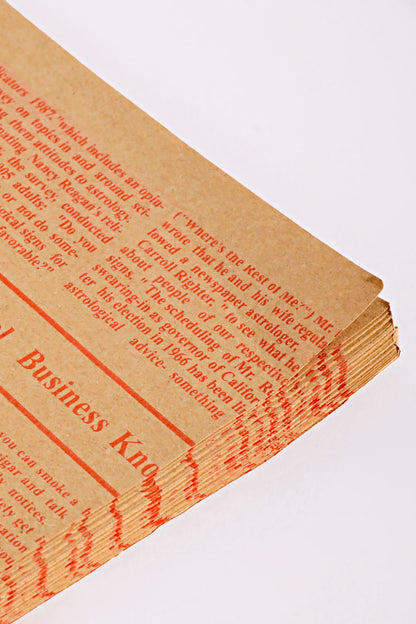 icators 1987," which includes an opin-
vey on topics in and around sci-
ing them attitudes to astrology.
lowing Nancy Reagan's reli-
the survey, conducted
adults: "Do you
or not do some-
signs for
favorable?"
("Where's the Rest of Me?") Mr.
wrote that he and his wife regul
lowed a newspaper astrologer
Carroll Righter, "to see what
about people of our respectiv
signs. "The scheduling of Mr. R
swearing-in as governor of Califor
ter his election in 1966 has been
astrological advice- something
Business Kno
you can smoke a
cigar and talk
notices.
get